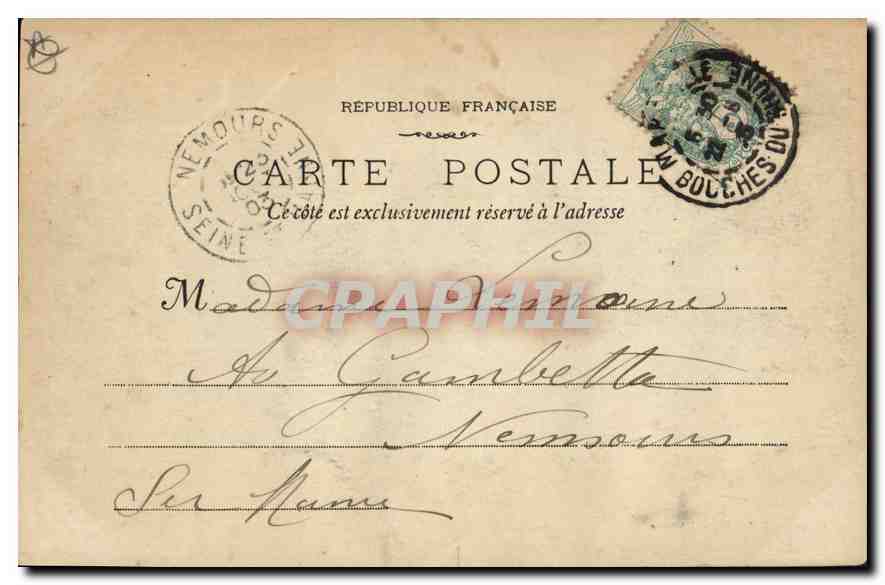 RÉPUBLIQUE FRANÇAISE
CARTE POSTALE
Ce côté est exclusivement réservé à l'adresse
NEMOURS
SEINE
BOUCHES DU RHONE
CPAPHIL
Madame Lemoine
Av Gambetta
Nemours